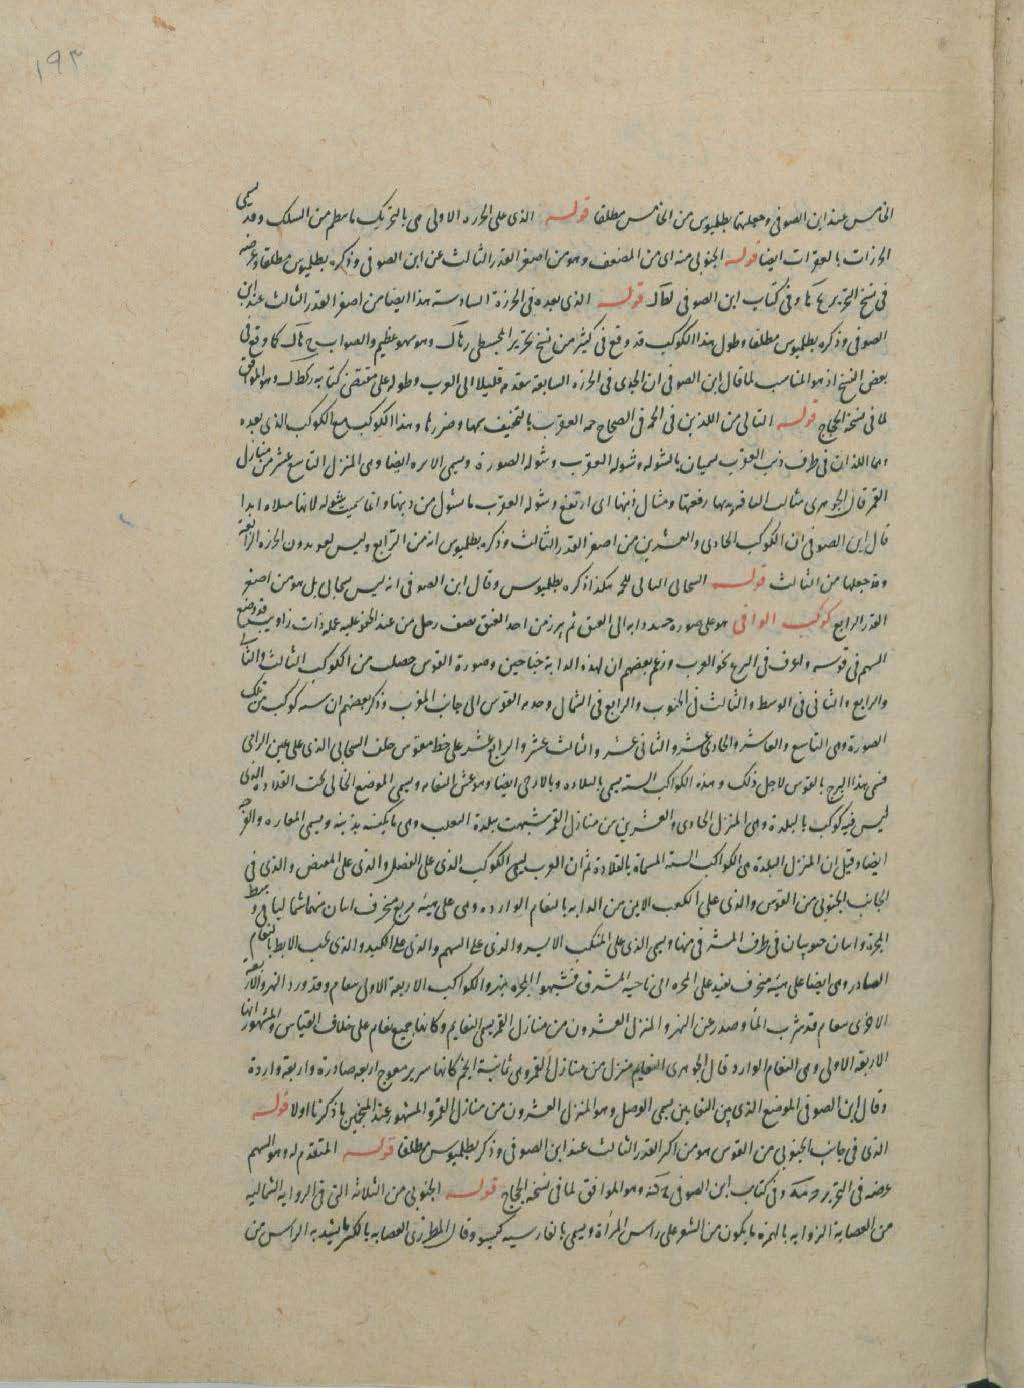 ١٩٣
الخامس عند ابن الصوفي وجعلها بطليوس من الخامس مطلقا قوله الذى على الخرزة الاولى هى بالتحريك ما ينظم من السلك وقد يسمى
الخرزات بالفقرات ايضا قوله الجنوبى منه اى من المضعف وهو من اصغر القدر الثالث عن ابن الصوفى وذكره بطليوس مطلقا وعرضه
فى نسخ التحرير وفى كتاب ابن الصوفى قوله الذى بعده فى الخرزة السادسة هذا ايضا من اصغر القدر الثالث عند ابن
الصوفى وذكره بطليوس مطلقا وطول هذا الكوكب قد وقع فى كثير من نسخ تحرير المجسطى وهو سهو عظيم والصواب كا وقع فى
بعض النسخ اذ هو المناسب لما قال ابن الصوفى ان الجدى فى الخرزة السابعة يتقدمه قليلا الى الغرب وطوله على مقتضى كتابه وهو الموافق
لما فى نسخة الحجاج قوله التالى من اللذين فى الحمة فى الصحاح حمة العقرب بالتخفيف سمها وضرها وهذا الكوكب مع الكوكب الذى بعده
وهما اللذان فى طرف ذنب العقرب يسميان بالشوله وشوله العقرب وشوله الصورة ويسمى الابره ايضا وهى المنزل التاسع عشر من منازل
القمر قال الجوهرى شالت الناقة بذنبها رفعتها وشال ذنبها اى ارتفع وشوله العقرب ما تشول من ذنبها وانما سميت شوله لانها ابدا
قال ابن الصوفى ان الكوكب الحادى والعشرين من اصغر القدر الثالث وذكره بطليوس انه من الرابع وليس لعويد دون الخرزه الرابعة
وقد جعلها من الثالث قوله السحابى التالى للحمة هكذا ذكره بطليوس وقال ابن الصوفى انه ليس سحابى بل هو من اصغر
القدر الرابع كوكب الرامى هو على صورة جسد دابه الى العنق ثم برز من احد العنق نصف رجل من عند الحقو عليه عمامة ذات ذوايب قد وضع
السهم فى قوسه واغرق فى النزع نحو الغرب وزعم بعضهم ان لهذه الدابة جناحين وصورة القوس حصلت من الكوكب الثالث والثانى
والرابع والثانى فى الوسط والثالث فى الجنوب والرابع فى الشمال وحدبه القوس الى جانب المغرب وذكر بعضهم ان سته كوكب من تلك
الصورة وهى التاسع والعاشر والحادى عشر والثانى عشر والثالث عشر والرابع عشر على خط مقوس خلف السحابى الذى على عين الرامى
فسمى هذا البرج بالقوس لاجل ذلك وهذه الكواكب الستة يسمى بالقلادة وبالادحى ايضا وهو عش النعامه ويسمى الموضع الخالى تحت القلادة الذى
ليس فيه كوكب بالبلدة وهى المنزل الحادى والعشرين من منازل القمر شبهت ببلدة الثعلب وهى ما يكنسه بذنبه ويسمى المفازه والفرجه
ايضا وقيل ان المنزل البلدة هى الكواكب الستة المسماة بالقلادة ثم ان العرب يسمى الكوكب الذى على النصل والذى على المقبض والذى فى
الجانب الجنوبى من القوس والذى على الكعب الايمن من الدابه بالنعام الوارده وهى على هيئة مربع منحرف اثنان منها شماليا فى وسط
المجرة واثنان جنوبيان فى طرف المشرق منها ويسمى الذى على المنكب الايسر والذى على السهم والذى على الكتد والذى تحت الابط بالنعام
الصادر وهى ايضا على هيئة منحرف بعيد على المجره الى ناحيه المشرق فشبهوا المجره بنهر والكواكب الاربعة الاولى بنعام وقد ورد النهر والاربعة
الاخرى بنعام قد شرب الماء وصدر عن النهر والمنزل العشرون من منازل القمر يسمى النعايم وكانها جميع نعام على خلاف القياس والمشهور انها
الاربعة الاولى وهى النعام الوارد قال الجوهرى النعايم منزل من منازل القمر وهى ثمانية انجم كانها سرير معوج اربعة صادرة واربعة واردة
وقال ابن الصوفى الموضع الذى بين النعامين يسمى الوصل وهو المنزل العشرون من منازل القمر والمشهور عند المنجمين ما ذكرنا اولا قوله
الذى فى جانب الجنوبى من القوس هو من اكبر القدر الثالث عند ابن الصوفى وذكر بطليوس مطلقا قوله المتقدم له وهو السهم
عرضه فى التحرير وفى كتاب ابن الصوفى وهو الموافق لما فى نسخه الحجاج قوله الجنوبى من الثلاثة التى فى الذوابه الشماليه
من العصابة الذوابه بالهمزه ما يكون من الشعر على راس المرأة ويسمى بالفارسيه كيسو وقال المطرزى العصابه بالكسر ما يشد به الراس من